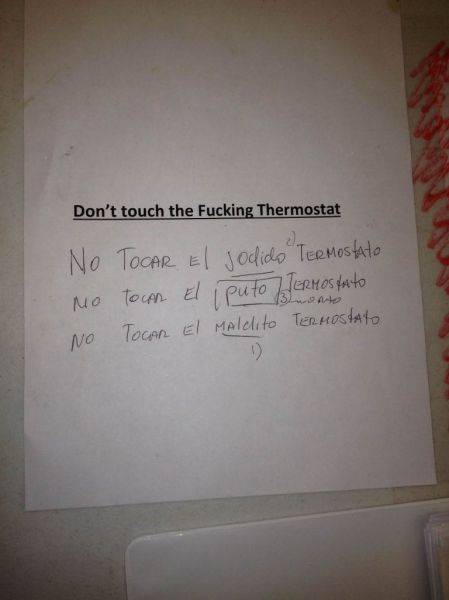 Don't touch the Fucking Thermostat
No Tocar El jodido 2) TERMOSTATO
NO TOCAR El puto TERMOSTATO
3)
NO TOCAR El Maldito TERMOSTATO
1)